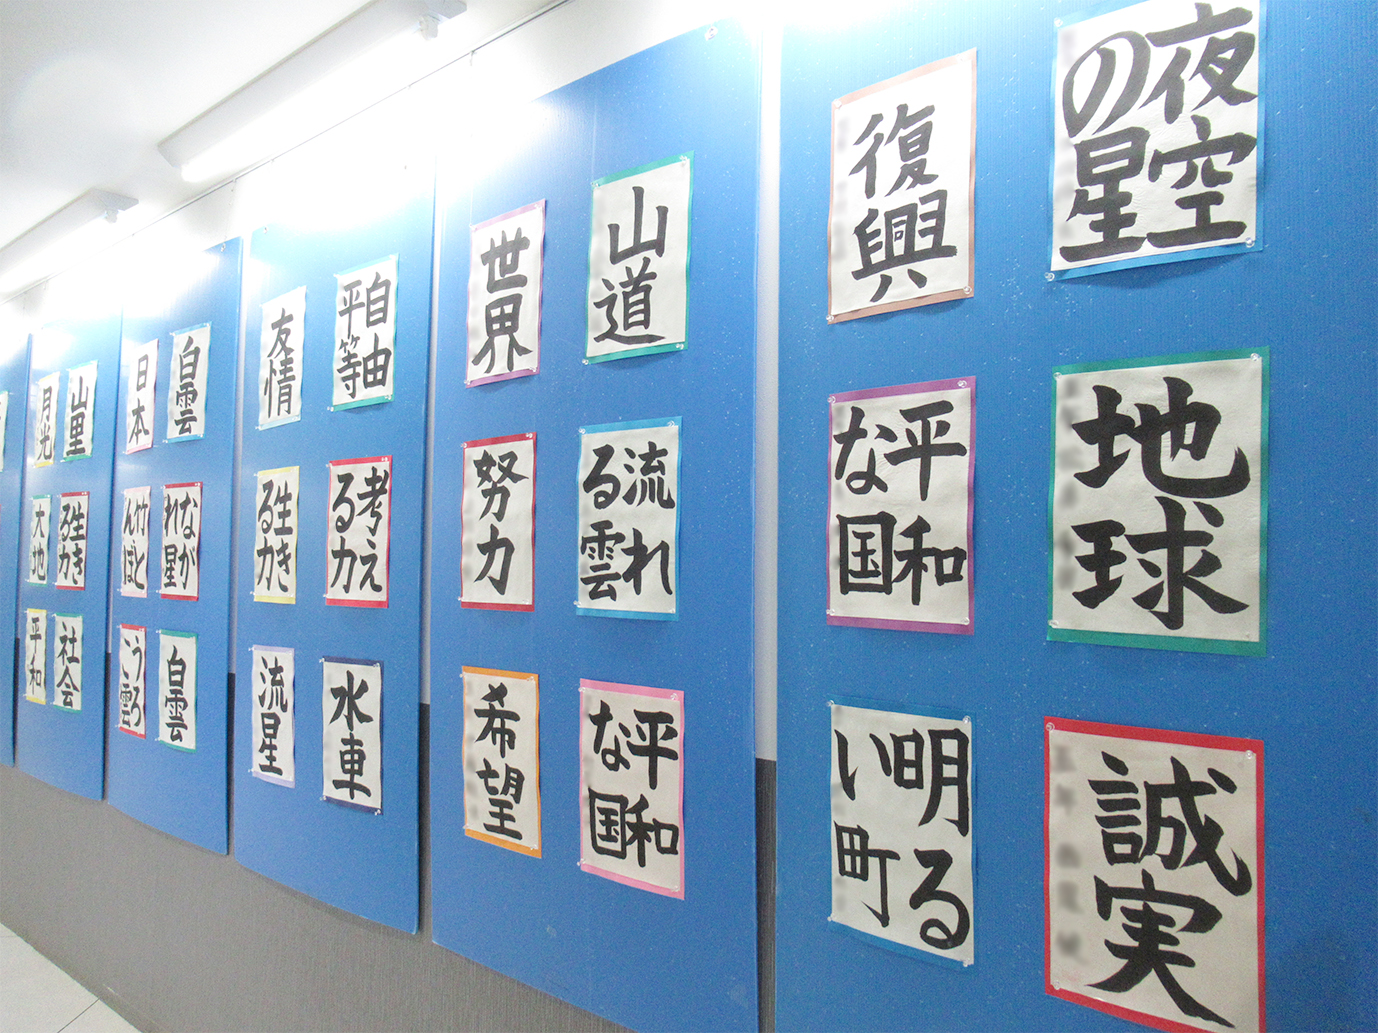 夜空
の星
復興
地球
平和
な国
誠実
明る
い町
山道
世界
流れ
る雲
努力
平和
な国
希望
自由
平等
友情
考え
る力
生き
る力
水車
流星
白雲
日本
なが
れ星
竹と
んぼ
白雲
うろ
こ雲
山里
月光
生き
る力
大地
社会
平和